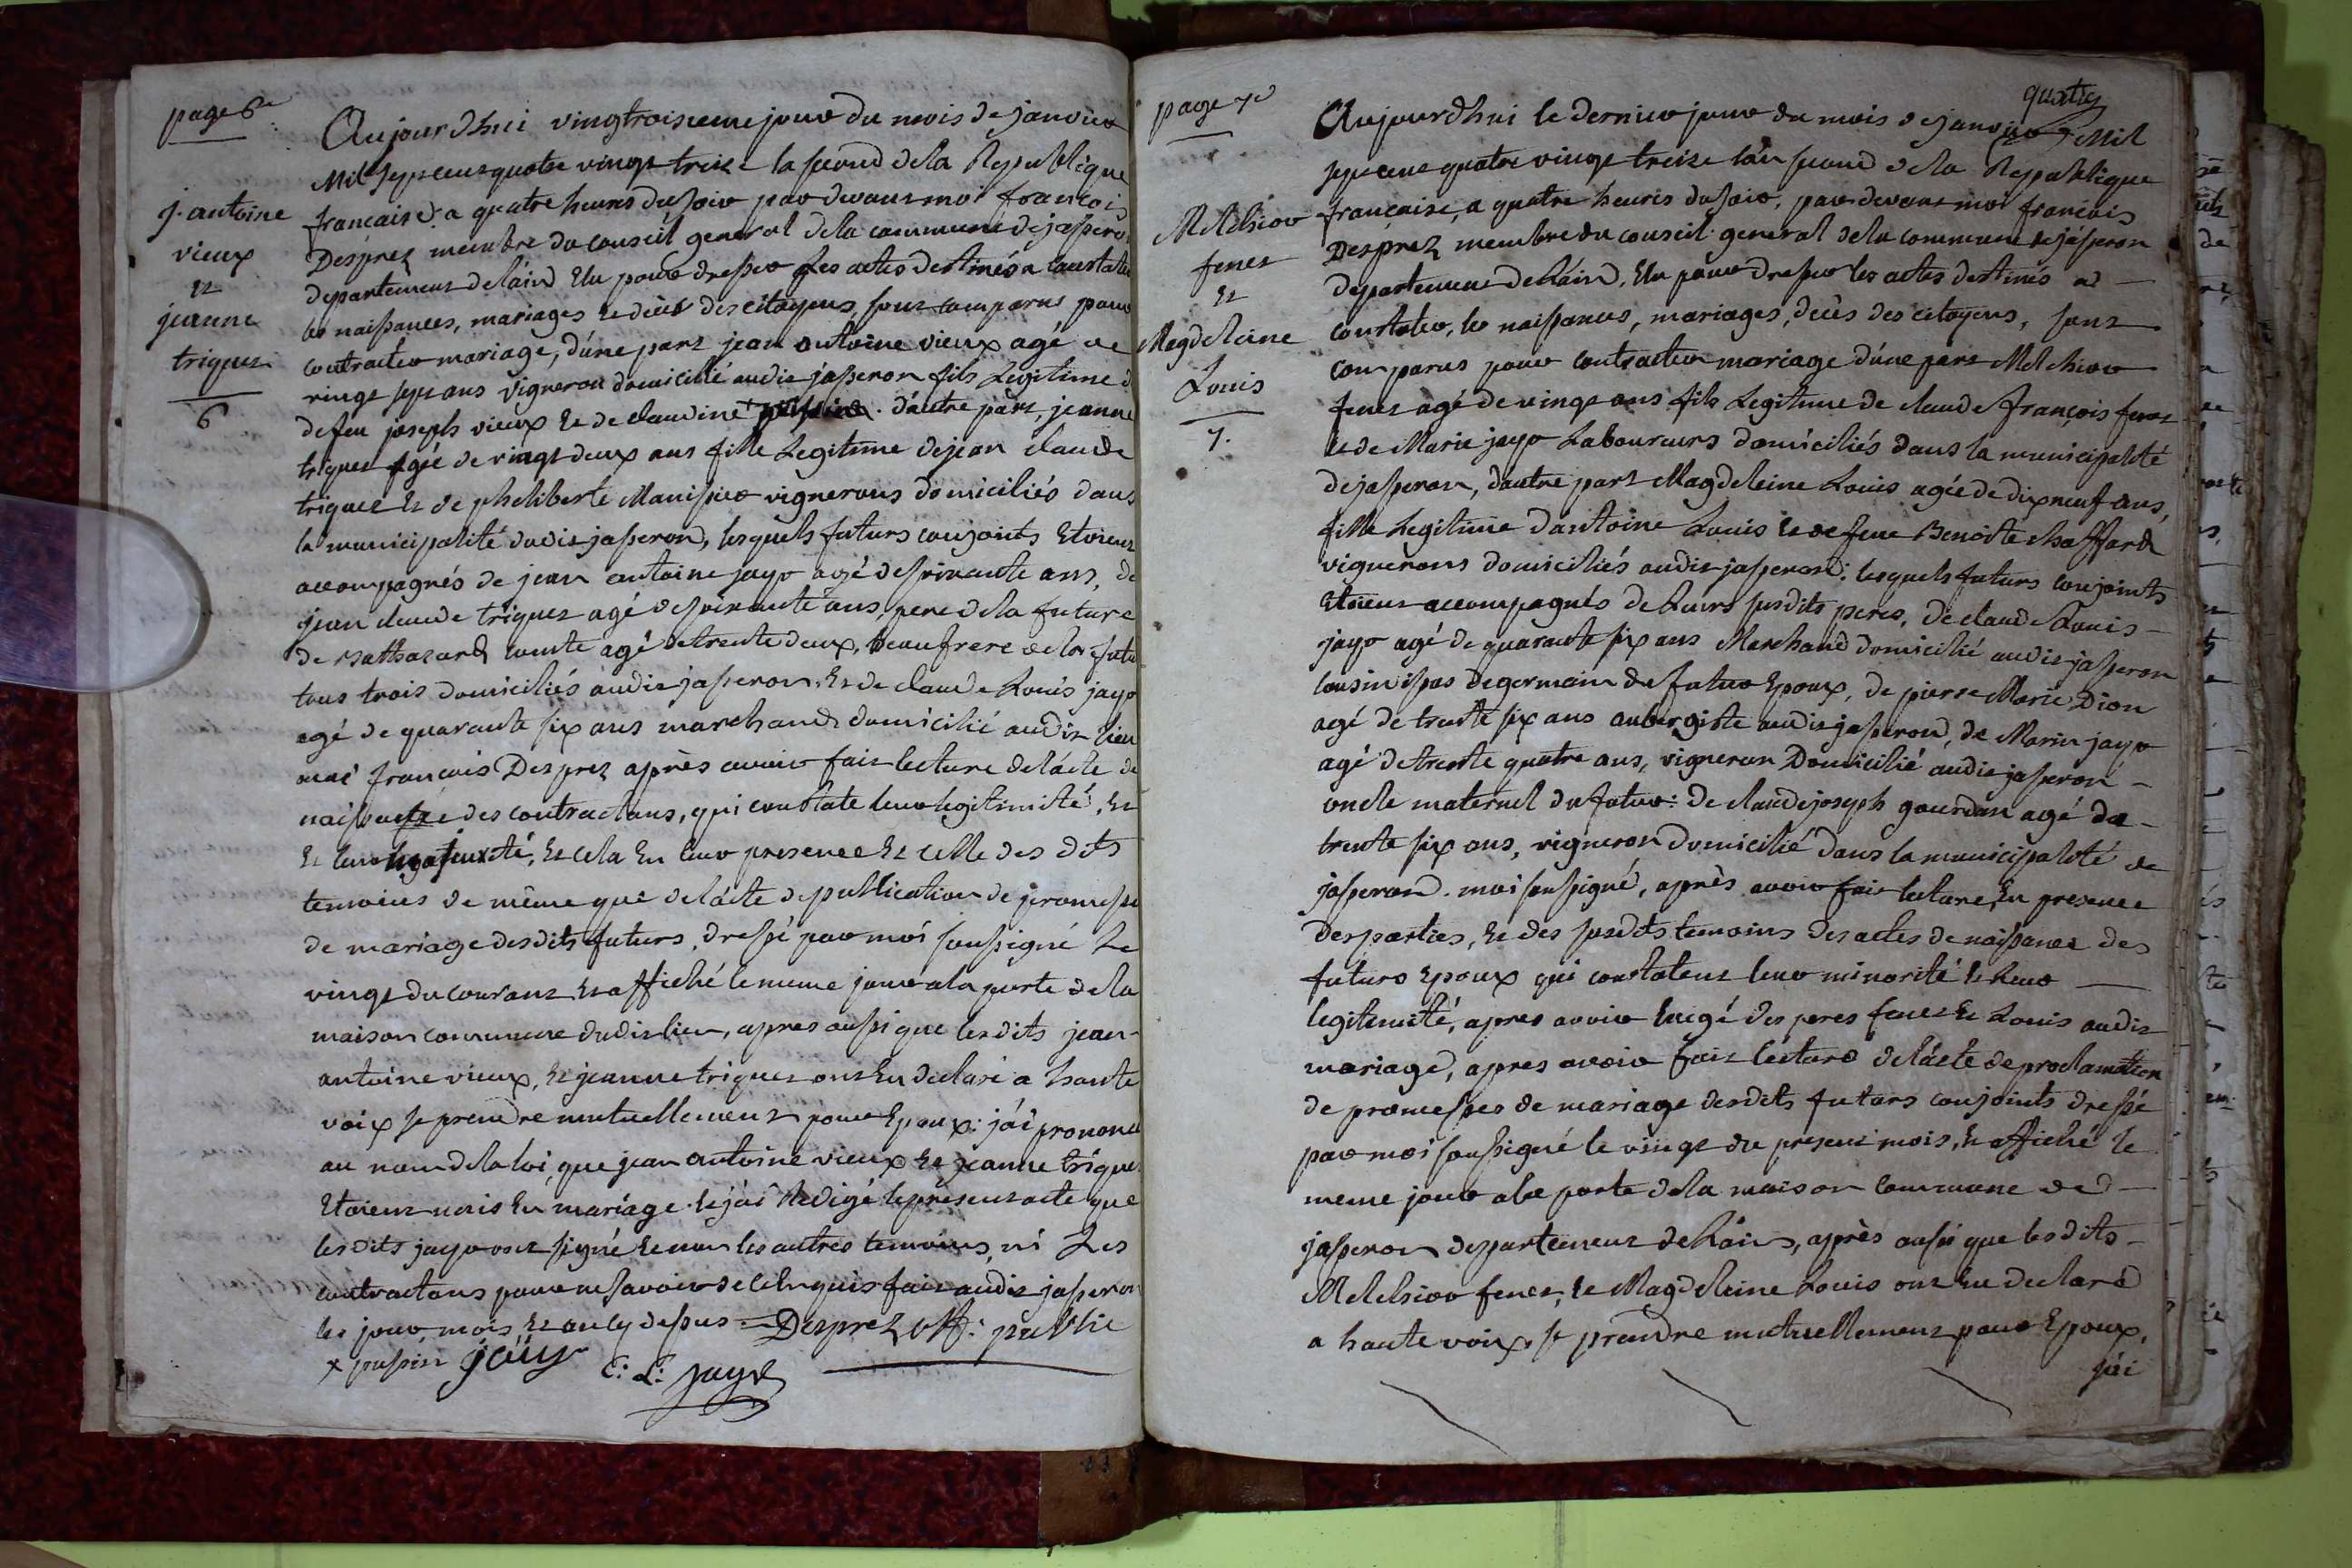 page 6e
j. antoine
vieux
et
jeanne
triquet
6
Aujourdhui vingtroisieme jour du mois de janvier
Mil sept cent quatre vingt treize la second dela Republique
francaise a quatre heures du soir par devant moi francois
Desprez membre du conseil general dela commune de jasseron
departement delain Elu pour dresser les actes destinés a constater
les naissances, mariages et decès des citoyens, sont comparus pour
contracter mariage, dúne part jean antoine vieux agé de
vingt sept ans vigneron domicilié audit jasseron fils Legitime d
defeu joseph vieux et de claudine + . dautre part, jeanne
triquet agée de vingt deux ans fille Legitime dejean claude
triquet et de pheliberte Manissier vignerons domiciliés dans
la municipalité dudit jasseron, lesquels futurs conjoints Etoient
accompagnés de jean antoine jayr agé desoixante ans, de
jean claude triquet agé desoixante ans, pere dela future
de Balthazard conte agé detrente deux, beaufrere dela futu
tous trois domiciliés audit jasseron, et de claude Louis jayr
agé de quarante six ans marchand domicilié audit lieu
moi francois Desprez après avoir fait lecture delácte de
naissance des contractans, qui constate leur legitimité, et
et leur majeurité, et cela En leur presence et celle des dits
temoins de même que delácte depublication de promesse
de mariage desdits futurs, dressé par moi soussigné Le
vingt du courant et affiché le meme jour ala porte dela
maison commune dudit lieu, apres aussi que lesdits jean-
antoine vieux, et jeanne triquet ont Eu declaré a haute
voix se prendre mutuellement pour Epoux: jái prononcé
au nom dela loi, que jean antoine vieux et jeanne trique
Etoient unis En mariage. et jái Redigé le present acte que
les dits jayr ont signé et non les autres temoins, ni Les
contractans pour ne savoir de ce Enquis fait audit jasseron
les jour, mois et an cy dessus = Desprez off: public
+ pussin jáiy C: L: jayr
page 7e
quatre
Melchior
fenet
et
Magdeleine
Louis
7.
Aujourdhui le dernier jour du mois de janvier Mil
sept cent quatre vingt treize lán second dela Republique
francaise, a quatre heures du soir, par devant moi francois
Desprez membre du conseil general dela commune de jasseron
departement deLáin, Elu pour dresser les actes destinés a -
constater, les naissances, mariages, decès des citoyens, sont
comparus pour contracter mariage dúne part Melchior
fenet agé de vingt ans fils Legitime de claude françois fenet
et de Marie jayr Laboureurs domiciliés dans la municipalité
dejasseron, dautre part Magdeleine Louis agée de dixneuf ans,
fille Legitime dantoine Louis et de feue Benoite chaffard
vignerons domiciliés audit jasseron; lesquels futurs conjoints
Etoient accompagnés de Leurs susdits peres, de claude Louis -
jayr agé de quarante six ans Marchand domicilié audit jasseron
cousin issus degermain du futur Epoux, de pierre Marie Dion
agé de trente six ans aubergiste audit jasseron, de Marin jayr
agé detrente quatre ans, vigneron Domicilié audit jasseron -
oncle maternel du futur: de claude joseph gourdan agé de -
trente six ans, vigneron domicilié dans la municipalité de
jasseron. moi soussigné, après avoir fait lecture, En presence
des parties, et des susdits temoins des actes de naissance des
futurs Epoux qui constatent leur minorité et Leur -
legitimité, apres avoir des peres fenet et Louis audit
mariage, apres avoir fait lecture delácte de proclamation
de promesses de mariage desdits futurs conjoints dressé
par moi soussigné le vingt du present mois, et affiché le
meme jour ala porte dela maison commune de -
jasseron departement deLáin, après aussi que lesdits -
Melchior fenet, et Magdeleine Louis ont Eu declaré
a haute voix, se prendre mutuellement pour Epoux,
jái